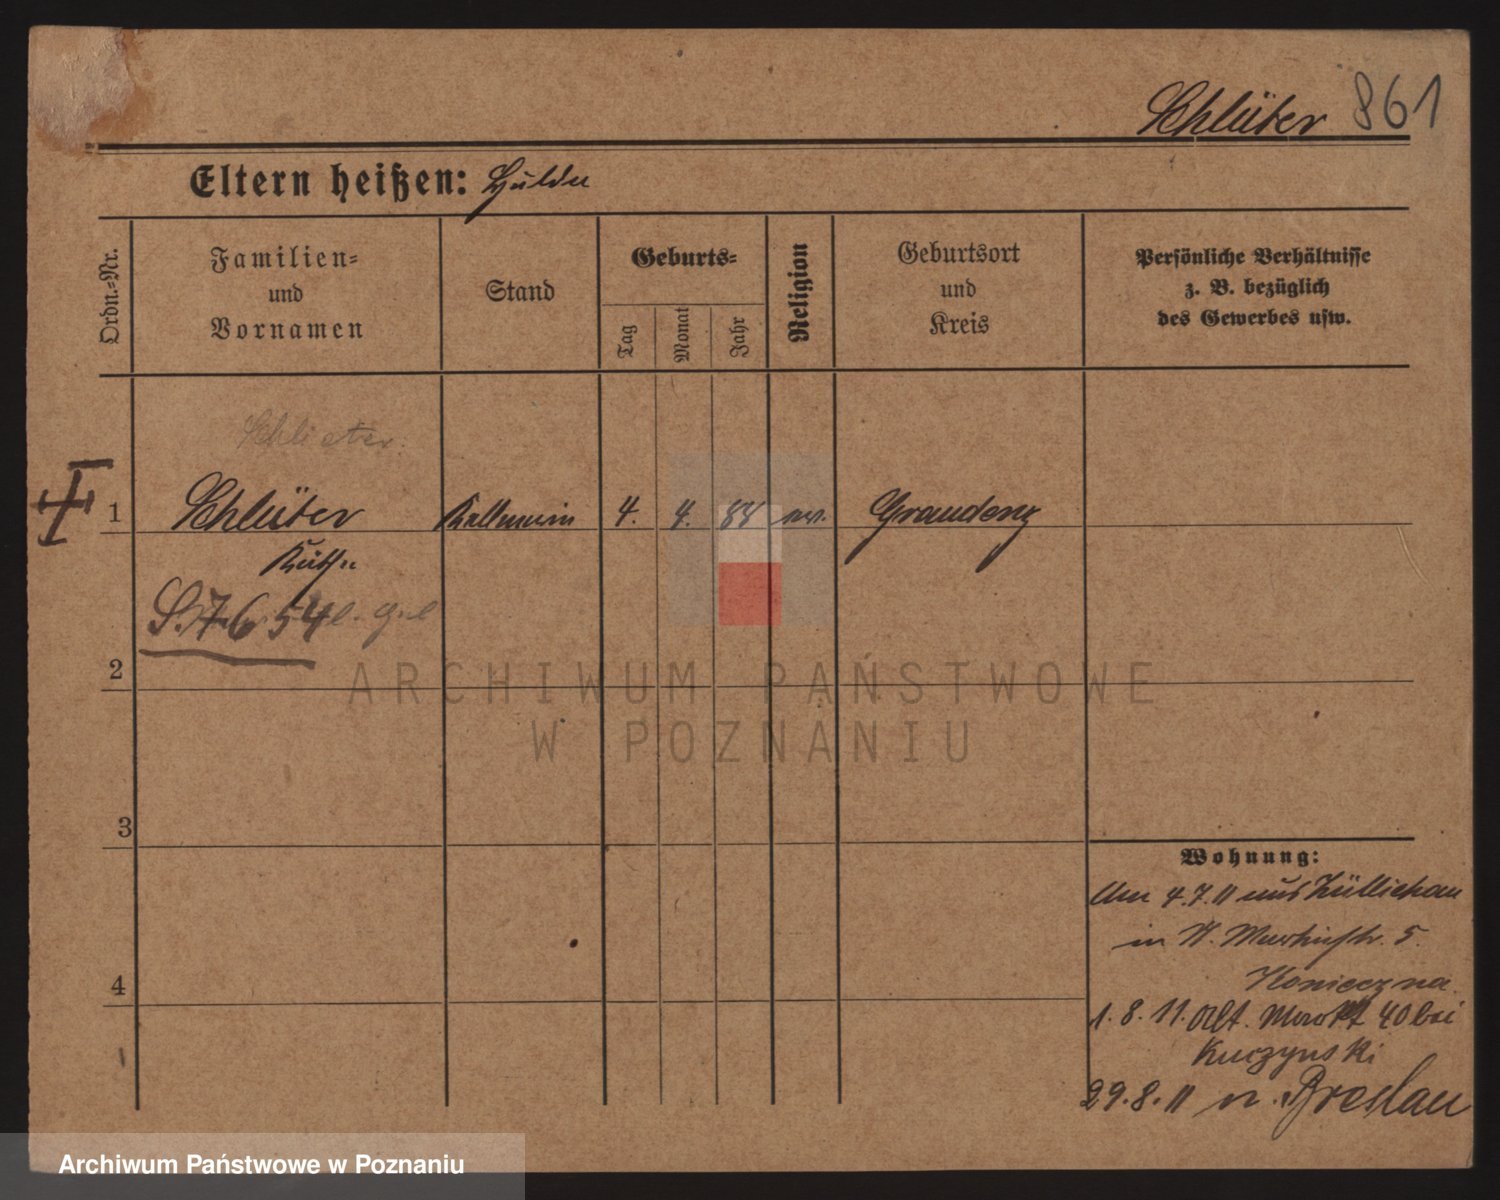 Schlüter 861
Eltern heißen: Hulda
Ordn.-Nr.
Familien=
und
Vornamen
Stand
Geburts=
Tag
Monat
Jahr
Religion
Geburtsort
und
Kreis
Persönliche Verhältnisse
z. B. bezüglich
des Gewerbes usw.
Schlieter
1 Schlüter Kellnerin 4. 4. 88 ev. Graudenz
S. 7654
2
ARCHIWUM PAŃSTWOWE
W POZNANIU
3
4
Wohnung:
Am 4.7.11 aus Züllichau
in W. Martinstr. 5.
Konieczna
1. 8. 11. Alt. Markt 40 bei
Kuczynski
29.8.11 n. Breslau
Archiwum Państwowe w Poznaniu